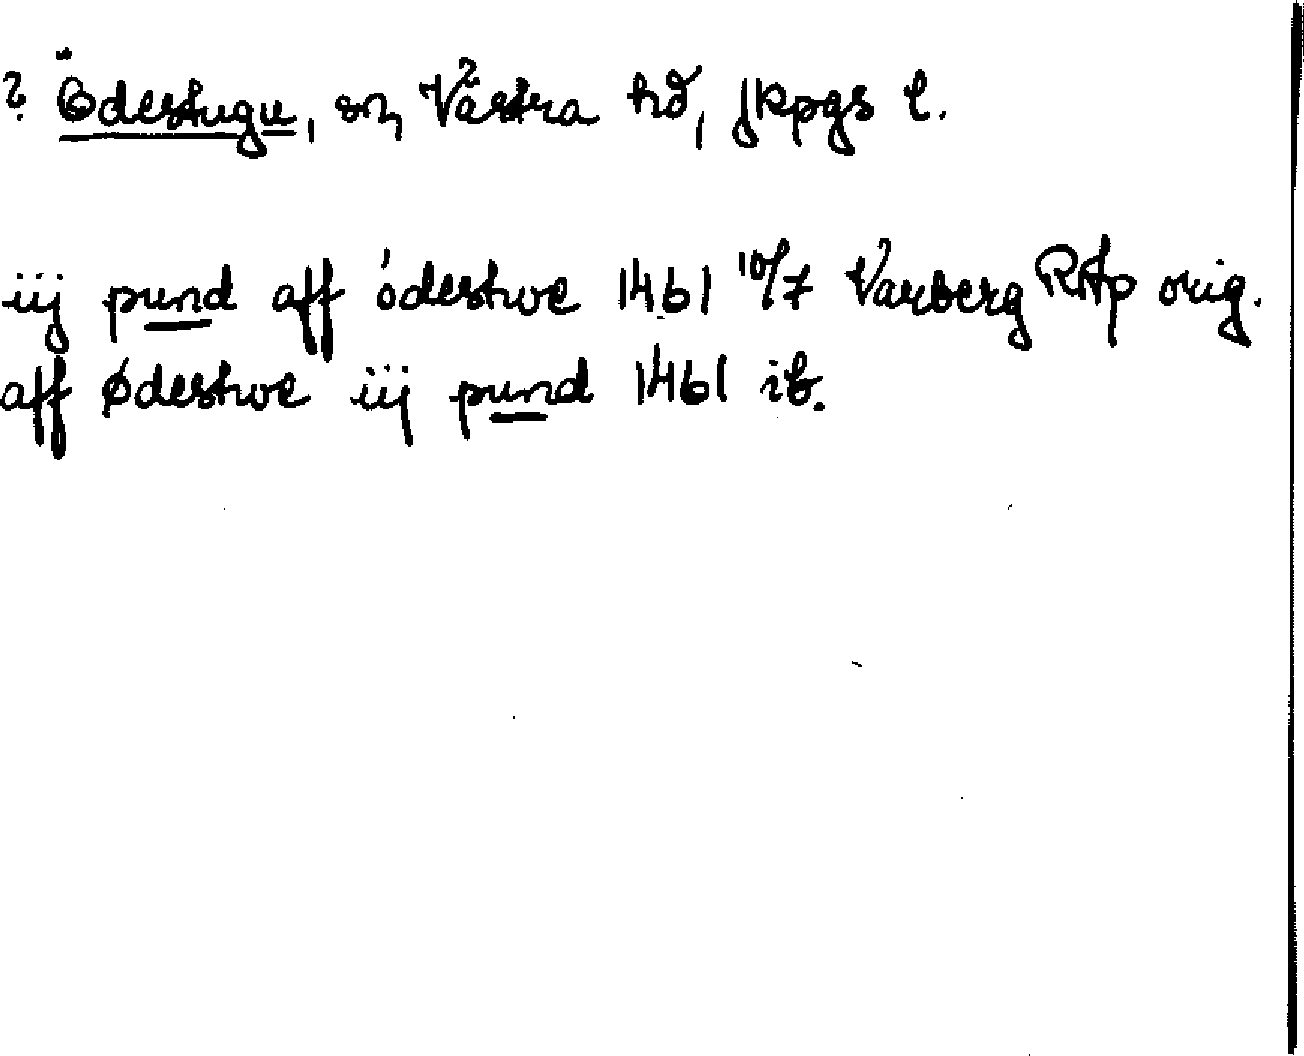 ? Ödestugu, sn, Västra hd, Jkpgs l.
iij pund aff ódestwe 1461 10/7 Varberg RAp orig.
aff ødestwe iij pund 1461 ib.